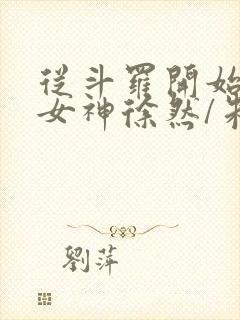 從斗羅開始
女神徐然/朱
劉萍